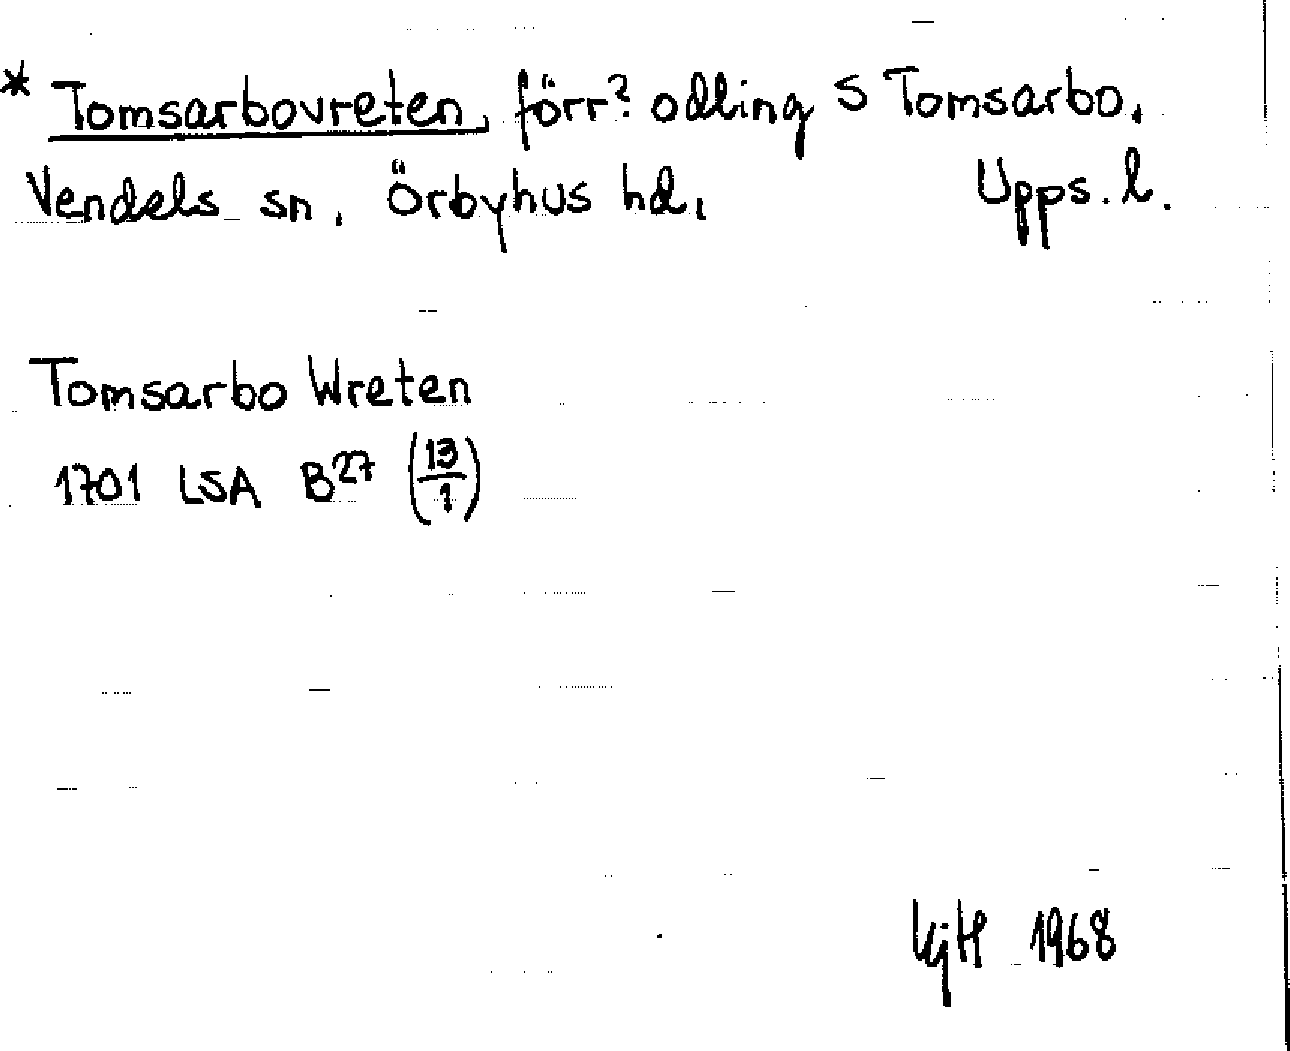 * Tomsarbovreten, förr? odling S Tomsarbo,
Vendels sn, Örbyhus hd, Upps. l.
Tomsarbo Wreten
1701 LSA B27 (13/1)
1968